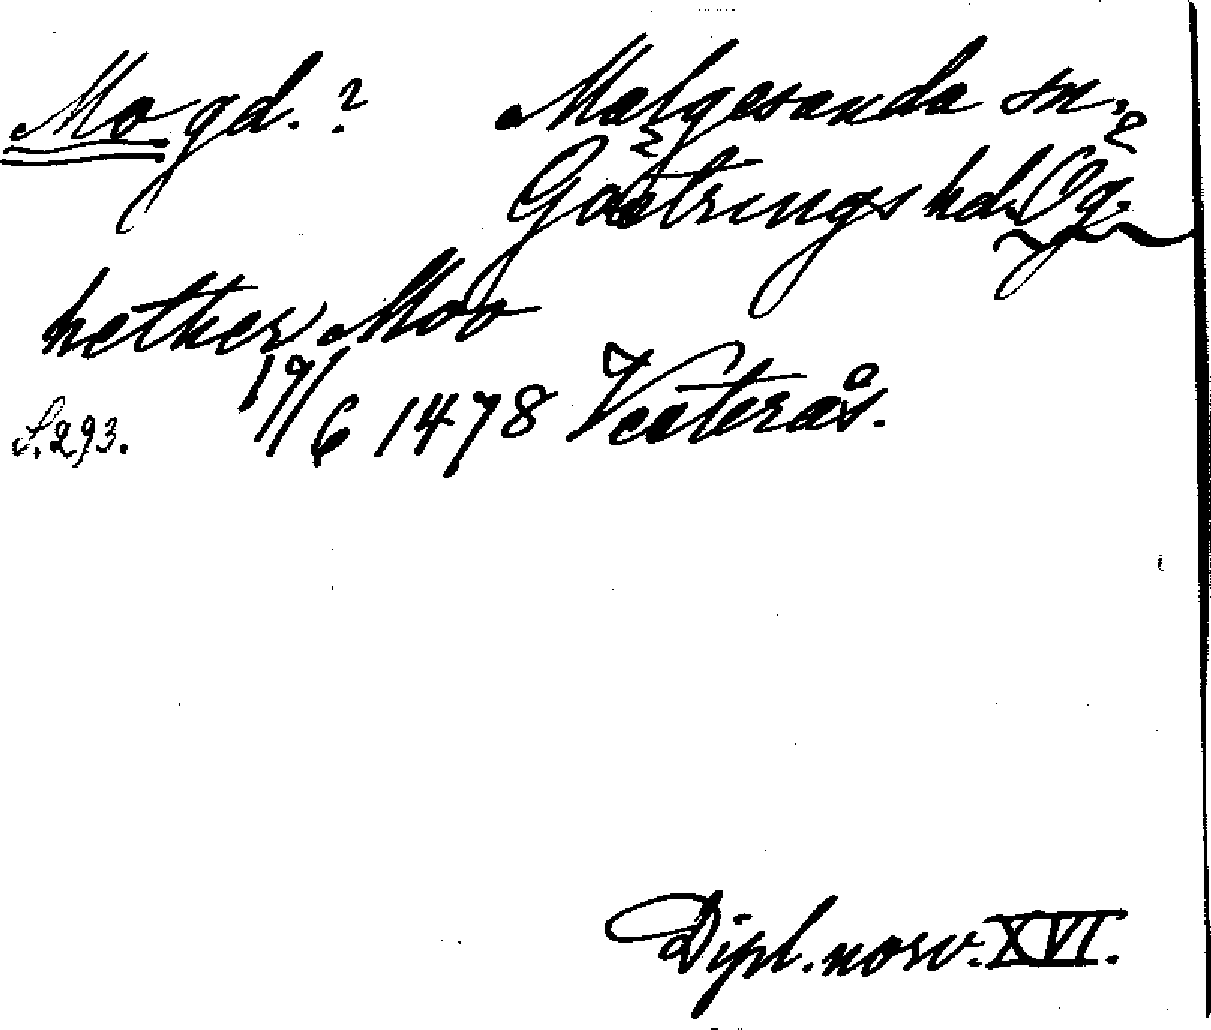 Mo gd. ?
Malgesanda sn,
Göstrings hd. Ög.
hether Moo
S. 293.
19/6 1478 Vesterås.
Dipl. norv. XVI.